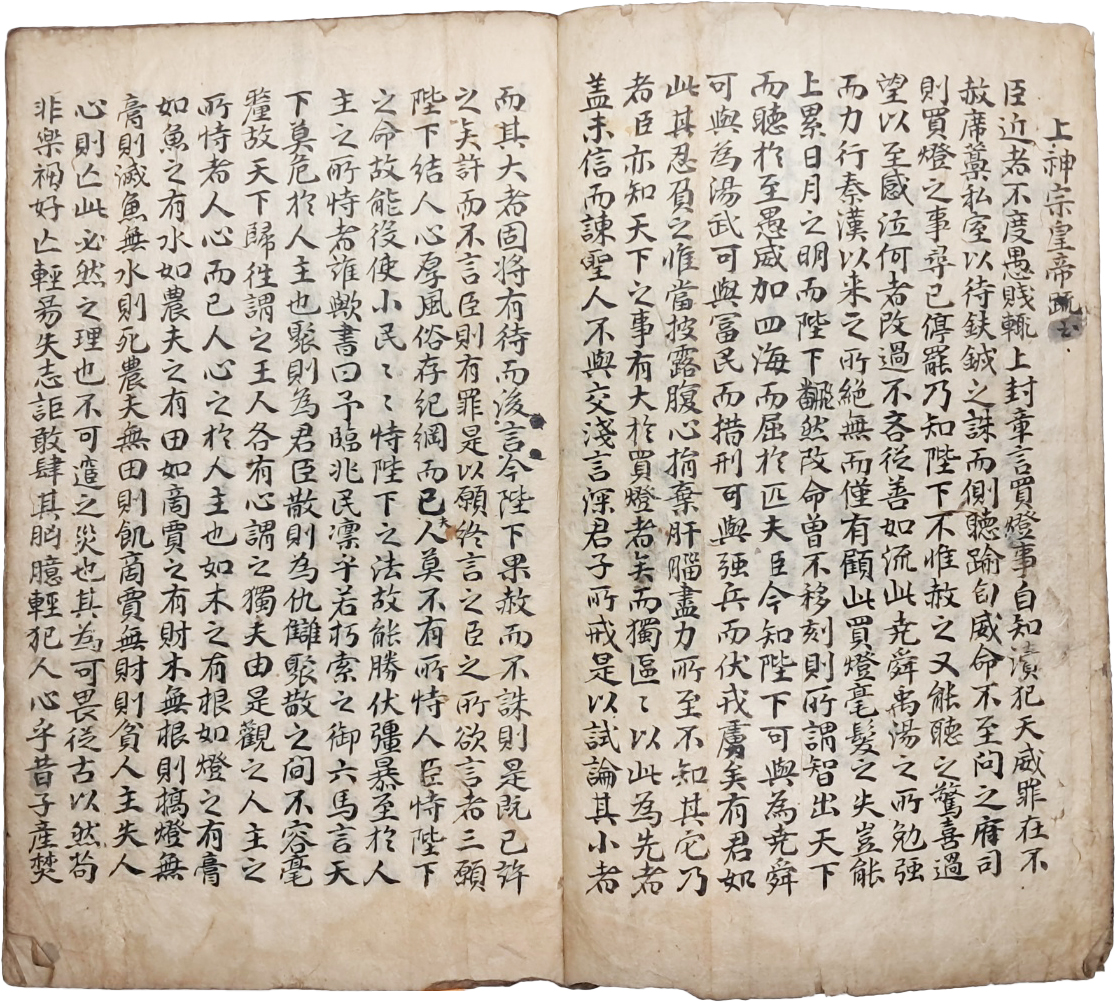 上神宗皇帝疏
臣近者不度愚賤輒上封章言買燈事自知瀆犯天威罪在不
赦席藁私室以待鈇鉞之誅而側聽踰旬威命不至問之府司
則買燈之事尋已停罷乃知陛下不惟赦之又能聽之驚喜過
望以至感泣何者改過不吝從善如流此尭舜禹湯之所勉强
而力行秦漢以来之所絕無而僅有顧此買燈毫髮之失豈能
上累日月之明而陛下飜然改命曾不移刻則所謂智出天下
而聽於至愚威加四海而屈於匹夫臣今知陛下可與為尭舜
可與為湯武可與冨民而措刑可與强兵而伏戎虜矣有君如
此其忍負之惟當披露腹心捐棄肝腦盡力所至不知其它乃
者臣亦知天下之事有大於買燈者矣而獨區〻以此為先者
盖未信而諫聖人不與交淺言深君子所戒是以試論其小者
而其大者固將有待而後言今陛下果赦而不誅則是既已許
之矣許而不言臣則有罪是以願終言之臣之所欲言者三願
陛下結人心厚風俗存紀綱而已人莫不有所恃人臣恃陛下
之命故能役使小民〻〻恃陛下之法故能勝伏彊暴至於人
主之所恃者誰歟書曰予臨兆民凜乎若朽索之御六馬言天
下莫危於人主也聚則為君臣散則為仇讎聚散之间不容毫
釐故天下歸徃謂之王人各有心謂之獨夫由是觀之人主之
所恃者人心而已人心之於人主也如木之有根如燈之有膏
如魚之有水如農夫之有田如商賈之有財木無根則槁燈無
膏則滅魚無水則死農夫無田則飢商賈無財則貧人主失人
心則亾此必然之理也不可逭之災也其為可畏従古以然苟
非樂禍好亾輕昜失志詎敢肆其胸臆輕犯人心乎昔子產焚